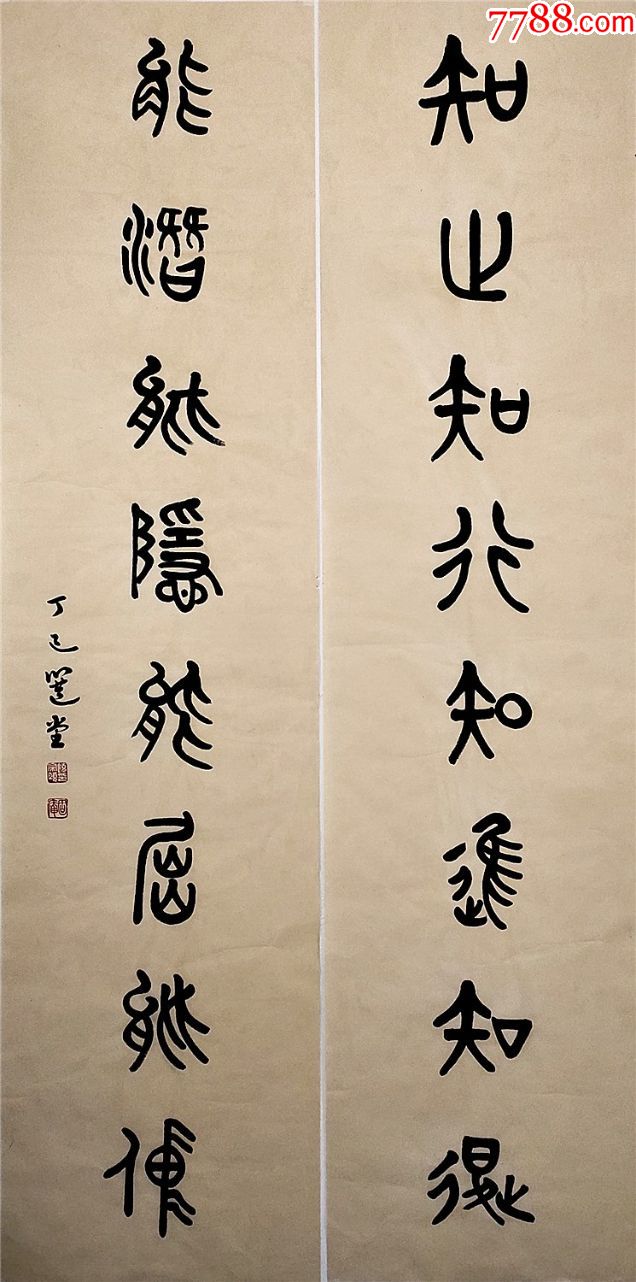 7788.com
知止知行知進知退
能潛能隱能屈能伸
丁巳選堂